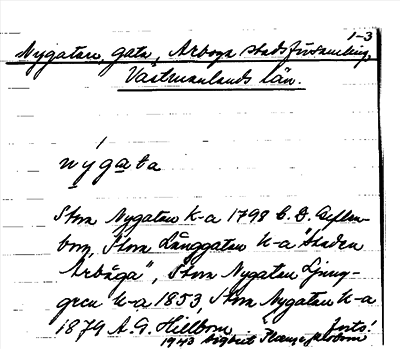 1-3
Nygatan, gata, Arboga stadsförsamling,
Västmanlands län.
nýgata
Stora Nygatan K-a 1798 C. D. Geflen-
born, Stora Långgatan K-a "Staden
Arbåga", Stora Nygatan Ljung-
gren K-a 1853, Stora Nygatan K-a
1879 A. G. Hillbom forts!
1943